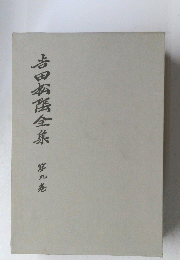 吉田松陰全集
第九卷